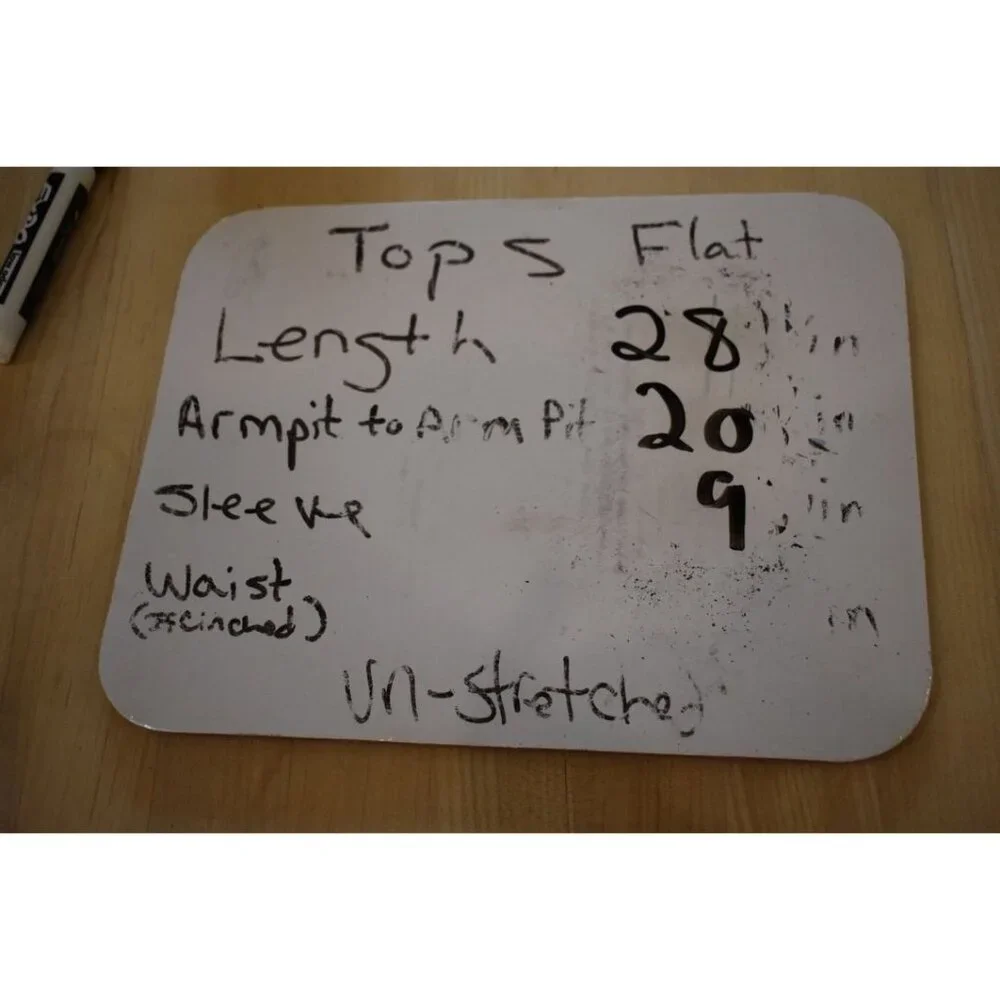 EXPO
Tops Flat
Length 28 in
Armpit to Arm Pit 20 in
Sleeve 9 in
Waist in
(If cinched)
Un-Stretched